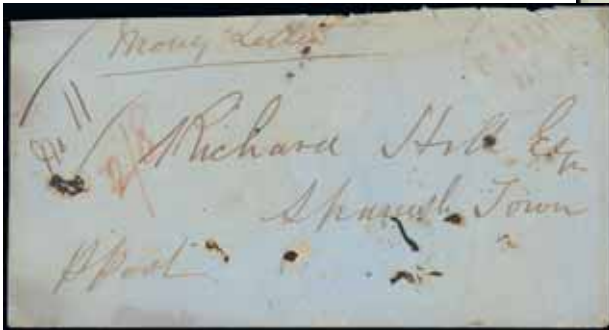 Money Letter
No 11
2/8
Richard Hill Esq
Spanish Town
p Post